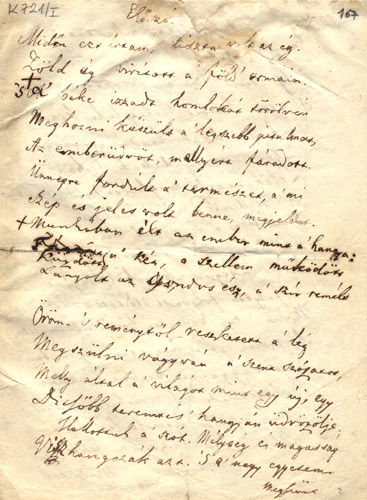 K 721/I
167
Előszó.
Midőn ezt írtam, tiszta volt az ég.
Zöld ág virított a föld' ormain.
+ 's a' béke izzadt homlokát törölvén
Meghozni készült a' legszebb jutalmat,
Az emberüdvöt, mellyért fáradott.
Ünnepre fordult a' természet, a mi
Szép és jeles volt benne, megjelent.
+ Munkában élt az ember mint a' hangya:
Küzdött kéz, a szellem működött
Lángolt az gondos ész, a' szív remélt
Öröm 's reménytől reszketett a' lég
Megszülni vágyván a' szent szózatot,
Melly által a világot mint egy új, egy
Dicsőbb teremtés' hangján üdvözölje.
Hallottuk a szót. Mélység és magasság
Viszhangozák azt. 'S a' nagy egyetem
Megszünt